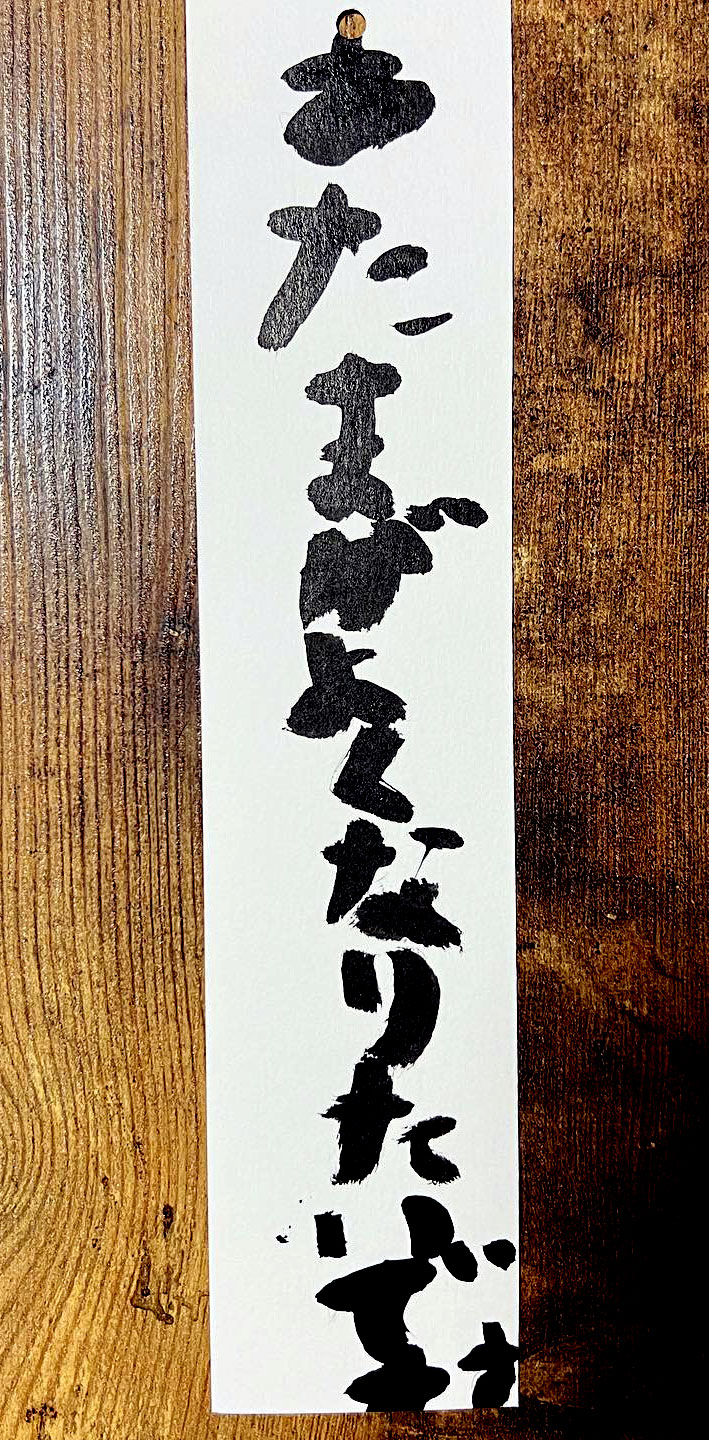 あたまがよくなりたいです